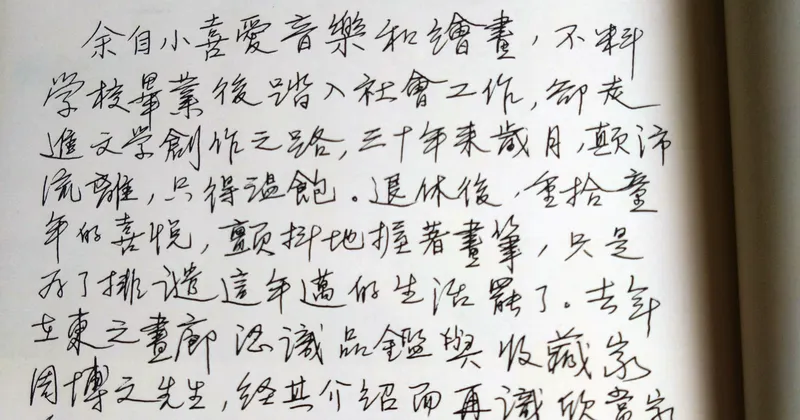 余自小喜愛音樂和繪畫，不料
学校畢業後踏入社會工作，卻走
進文学創作之路，三十年来歲月，顛沛
流離，只得溫飽。退休後，重拾童
年的喜悅，顫抖地握著畫筆，只是
为了排遣這年邁的生活罷了。去年
在東之畫廊认識品鑑與收藏家
周博文先生，經其介紹而再識欣賞家